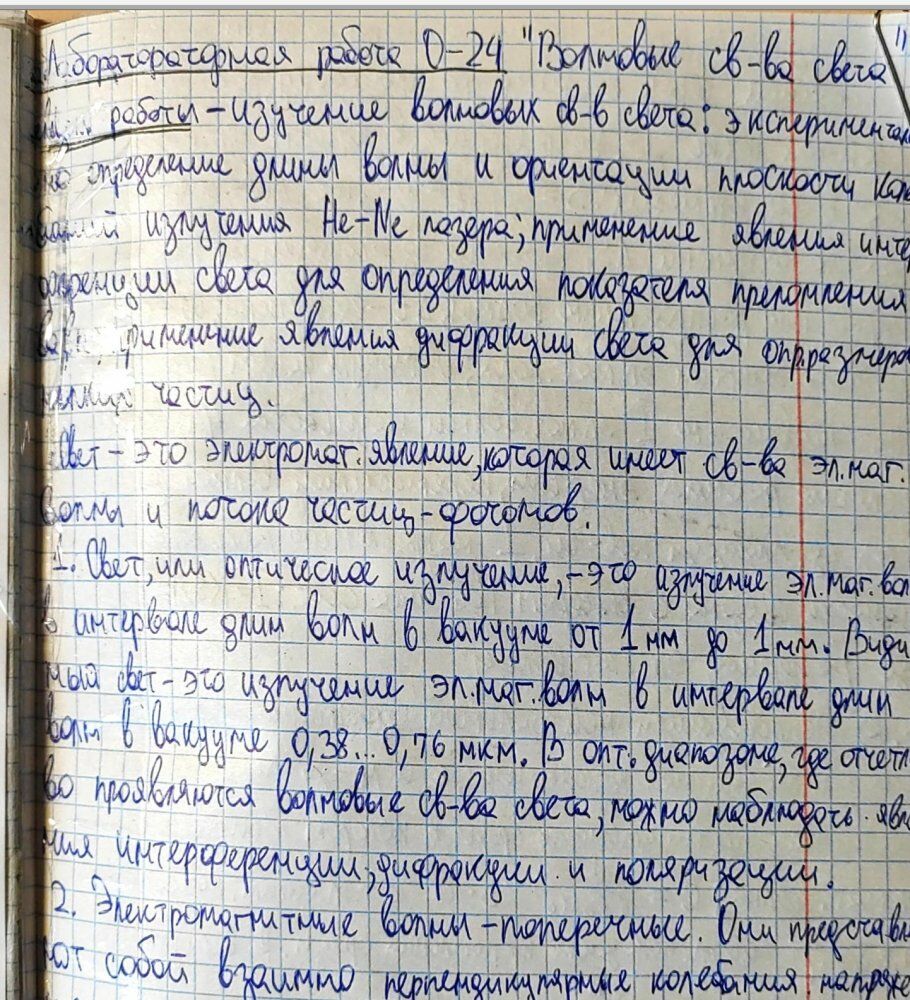 Лаборатораторная работа О-24 "Волновые св-ва света
работы - изучение волновых св-в света: эксперименталь
но определение длины волны и ориентации плоскости кол
баний излучения He-Ne лазера; применение явления инте
рференции света для определения показателя преломления
применение явления дифракции света для опр. размеро
мелких частиц.
Свет - это электромаг. явление, которая имеет св-ва эл. маг.
волны и потока частиц - фотонов.
1. Свет, или оптическое излучение, - это излучение эл. маг. вол
в интервале длин волн в вакууме от 1 нм до 1 мм. Види
мый свет - это излучение эл. маг. волн в интервале длин
волн в вакууме 0,38...0,76 мкм. В опт. диапозоне, где отчетл
во проявляются волновые св-ва света, можно наблюдать явл
ния интерференции, дифракции и поляризации.
2. Электромагнитные волны - поперечные. Они представл
ют собой взаимно перпендикулярные колебания напряже